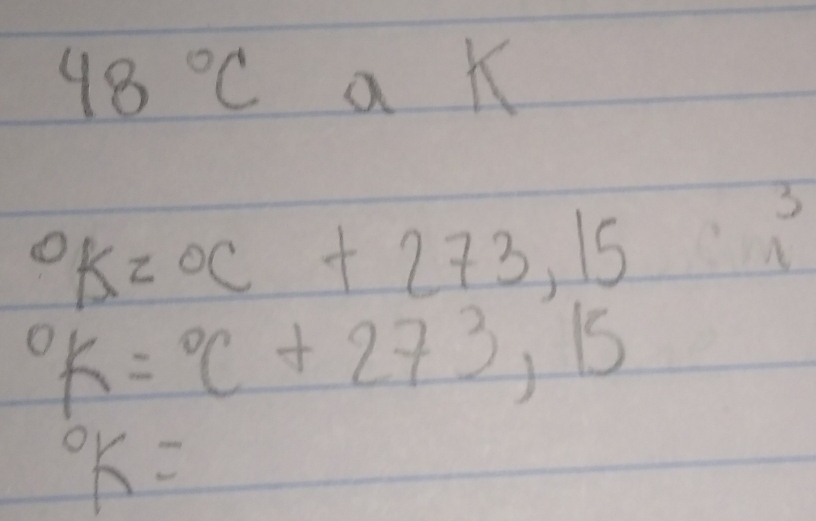 48 °C a K
°K = °C + 273,15
°K = °C + 273,15
°K =